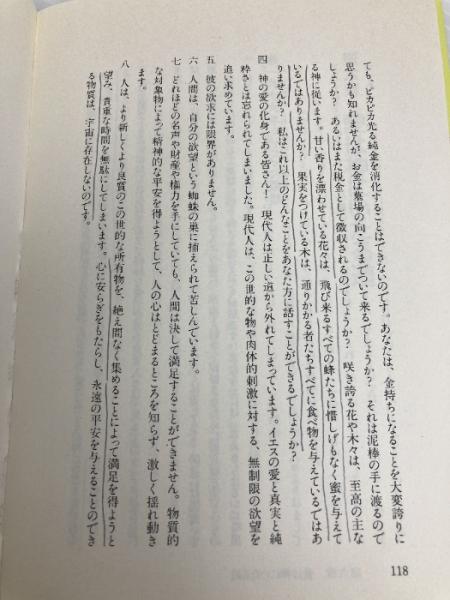 ても、ピカピカ光る純金を消化することはできないのです。あなたは、金持ちになることを大変誇りに
思うかも知れませんが、お金は墓場の向こうまでついて来るでしょうか？　それは泥棒の手に渡るので
しょうか？　あるいはまた税金として徴収されるのでしょうか？　咲き誇る花や木々は、至高の主な
る神に従います。甘い香りを漂わせている花々は、飛び来るすべての蜂たちに惜しげもなく蜜を与えて
いるではありませんか？　果実をつけている木は、通りかかる者たちすべてに食べ物を与えているではあ
りませんか？　私はこれ以上のどんなことをあなた方に話すことができるでしょうか？
四　神の愛の化身である皆さん！　現代人は正しい道から外れてしまっています。イエスの愛と真実と純
粋さとは忘れられてしまいました。現代人は、この世的な物や肉体的刺激に対する、無制限の欲望を
追い求めています。
五　彼の欲求には限界がありません。
六　人間は、自分の欲望という蜘蛛の巣に捕えられて苦しんでいます。
七　どれほどの名声や財産や権力を手にしていても、人間は決して満足することができません。物質的
な対象物によって精神的な平安を得ようとして、人の心はとどまるところを知らず、激しく揺れ動き
ます。
八　人は、より新しくより良質のこの世的な所有物を、絶え間なく集めることによって満足を得ようと
望み、貴重な時間を無駄にしてしまいます。心に安らぎをもたらし、永遠の平安を与えることのでき
る物質は、宇宙に存在しないのです。
118